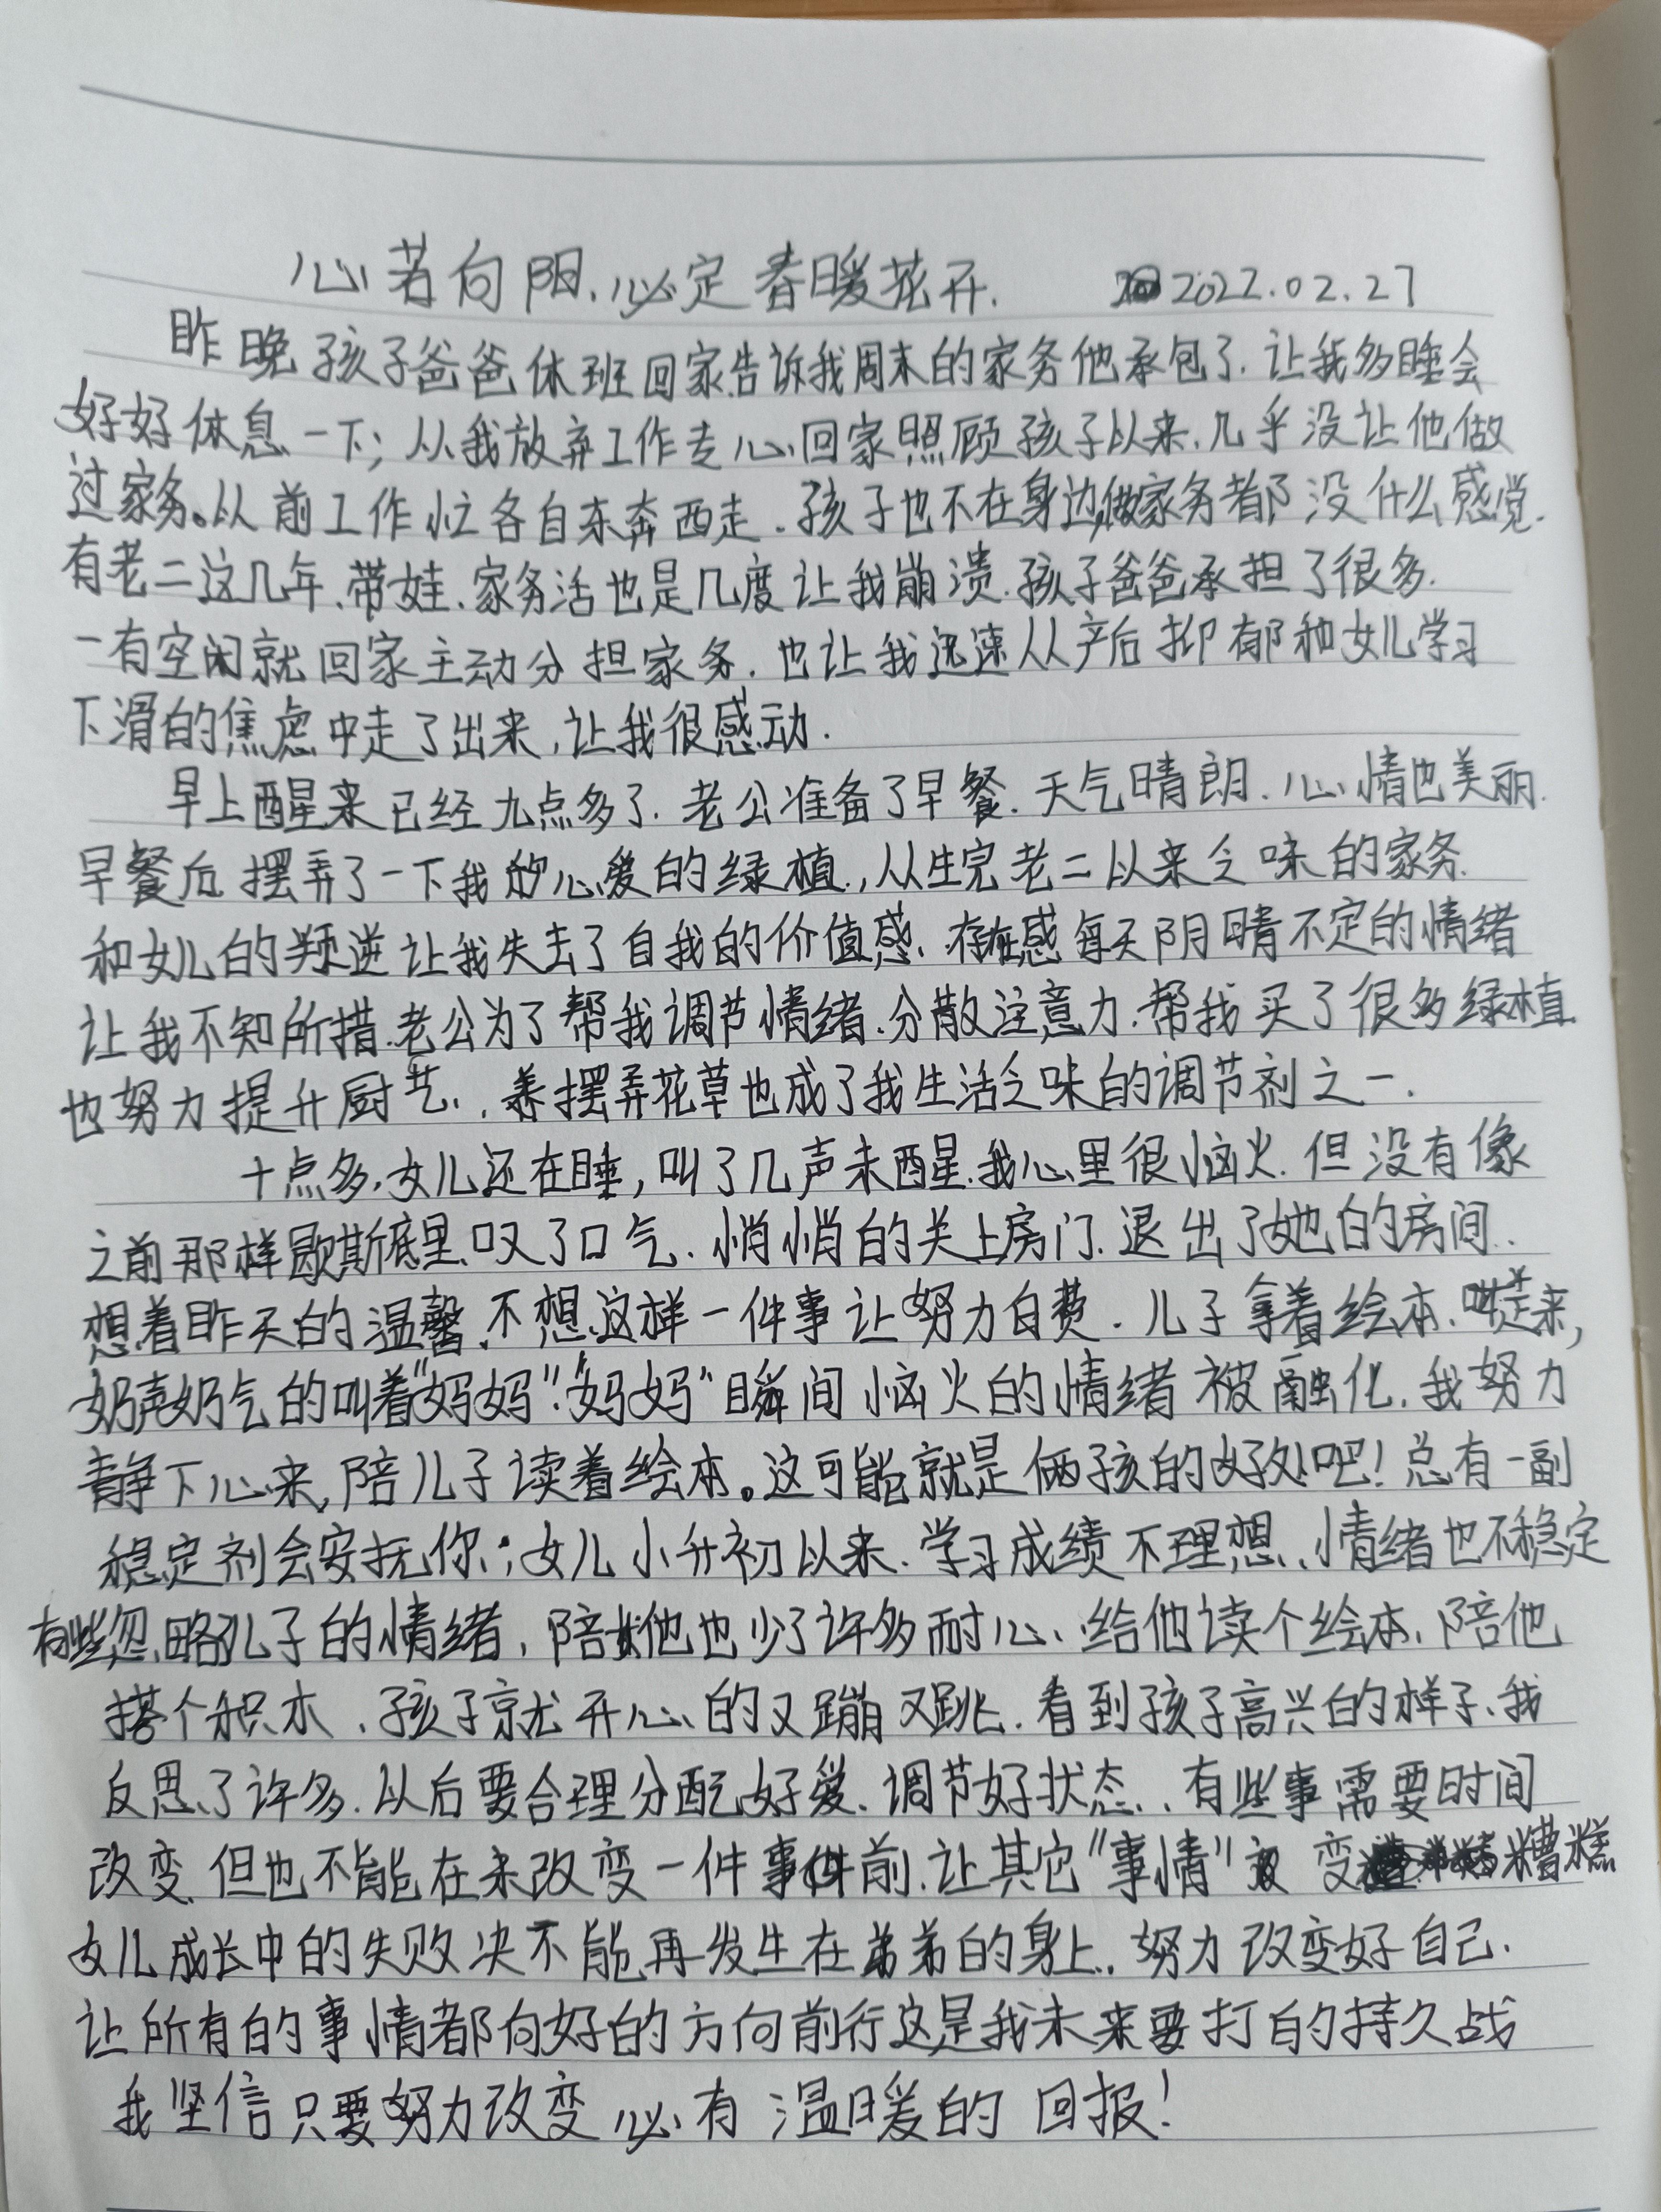 心若向阳.必定春暖花开. 2022.02.27
昨晚孩子爸爸休班回家告诉我周末的家务他承包了.让我多睡会
好好休息一下;从我放弃工作专心回家照顾孩子以来.几乎没让他做
过家务。从前工作忙各自东奔西走.孩子也不在身边,做家务都没什么感觉.
有老二这几年.带娃.家务活也是几度让我崩溃.孩子爸爸承担了很多.
一有空闲就回家主动分担家务.也让我迅速从产后抑郁和女儿学习
下滑的焦虑中走了出来,让我很感动.
早上醒来已经九点多了.老公准备了早餐.天气晴朗.心情也美丽.
早餐后摆弄了一下我的心爱的绿植.,从生完老二以来乏味的家务.
和女儿的叛逆让我失去了自我的价值感.存在感每天阴晴不定的情绪
让我不知所措.老公为了帮我调节情绪.分散注意力.帮我买了很多绿植
也努力提升厨艺.,养摆弄花草也成了我生活乏味的调节剂之一.
十点多.女儿还在睡,叫了几声未醒.我心里很恼火.但没有像
之前那样歇斯底里叹了口气.悄悄的关上房门.退出了她的房间.
想着昨天的温馨.不想这样一件事让努力白费.儿子拿着绘本.走来,
奶声奶气的叫着"妈妈"."妈妈"瞬间恼火的情绪被融化.我努力
静下心来,陪儿子读着绘本。这可能就是俩孩的好处吧!总有一副
稳定剂会安抚你.;女儿小升初以来.学习成绩不理想.情绪也不稳定
有些忽略儿子的情绪,陪他也少了许多耐心.给他读个绘本.陪他
搭个积木.孩子就开心的又蹦又跳.看到孩子高兴的样子.我
反思了许多.以后要合理分配好爱.调节好状态..有些事需要时间
改变.但也不能在未改变一件事件前.让其它"事情"变糟糕
女儿成长中的失败决不能再发生在弟弟的身上.努力改变好自己.
让所有的事情都向好的方向前行这是我未来要打的持久战
我坚信只要努力改变必有温暖的回报!